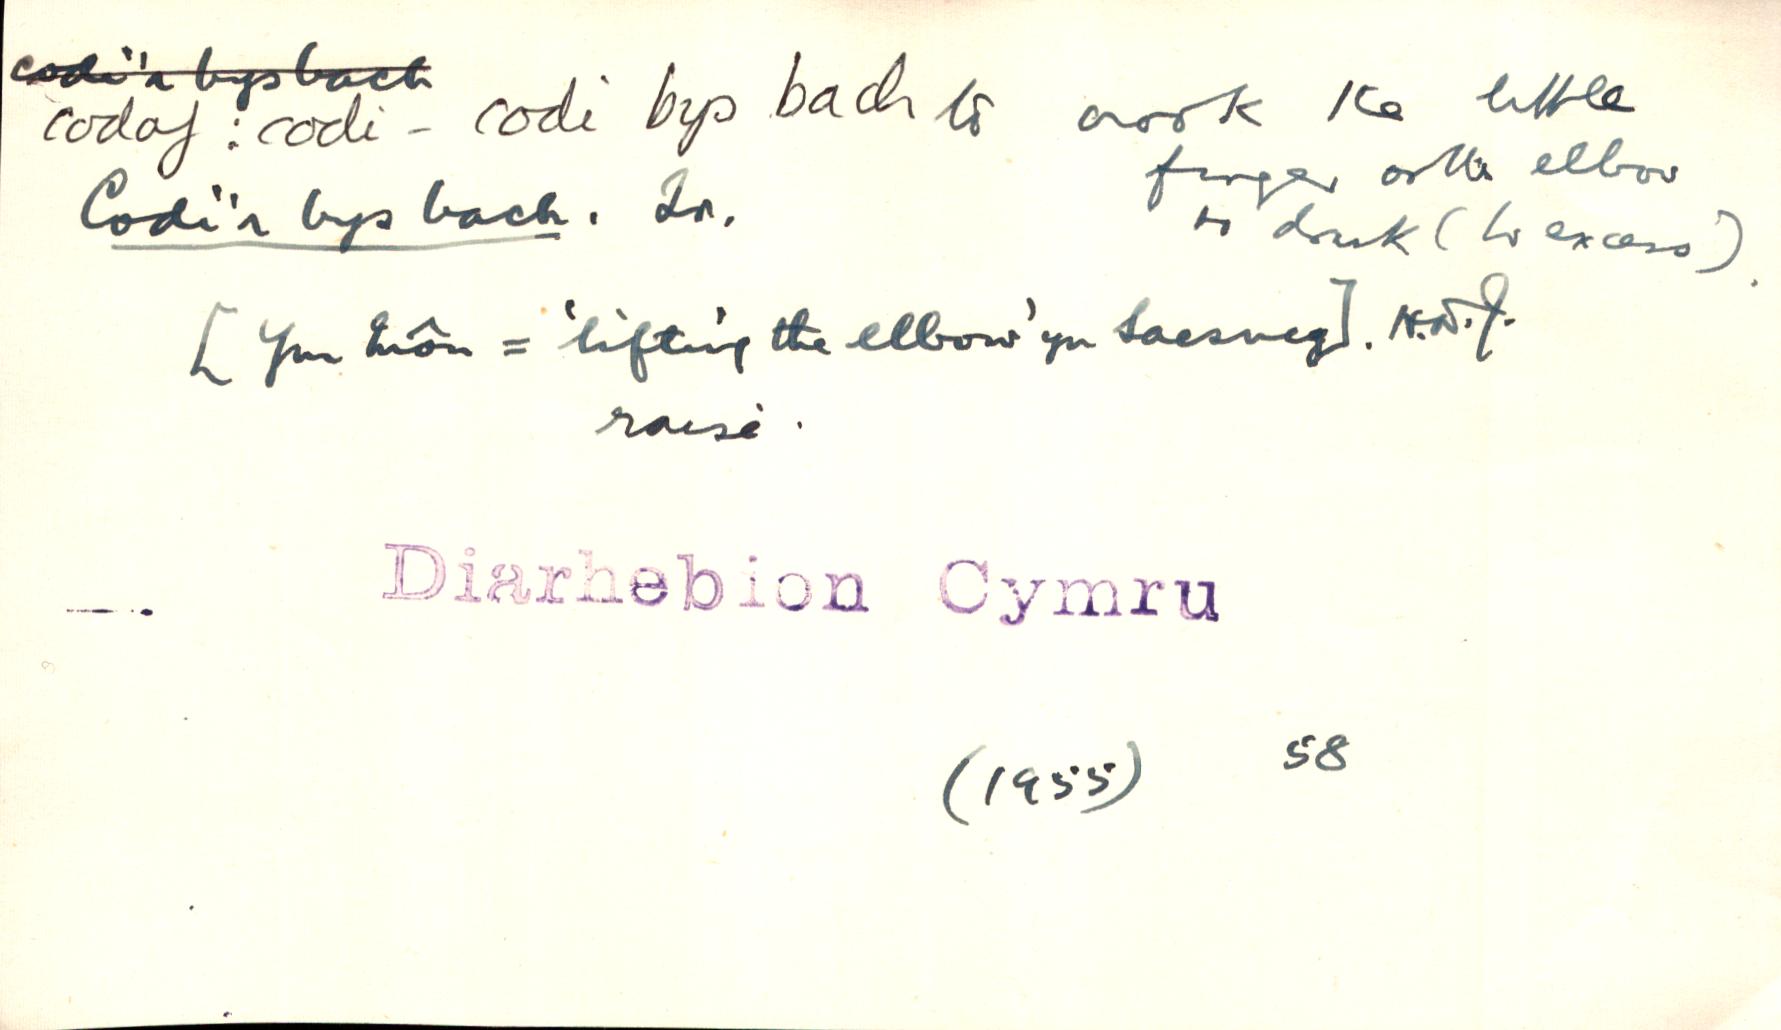 codi'r bys bach
codaf : codi - codi bys bach to crook the little
finger or the elbow
to drink (to excess).
Codi'r bys bach. Ln.
[Ym Môn = 'lifting the elbow' yn Saesneg]. H.W.J.
raise.
Diarhebion Cymru
(1955) 58